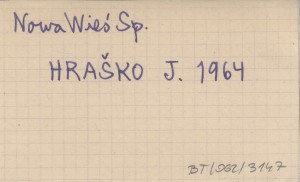 Nowa Wieś Sp.
HRAŠKO J. 1964
BT/962/3147